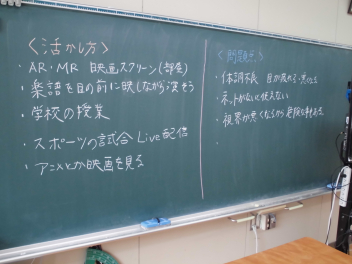 〈活かし方〉
・AR・MR 映画スクリーン(部屋)
・楽譜を目の前に映しながら演そう
・学校の授業
・スポーツの試合 Live配信
・アニメとか映画を見る
〈問題点〉
・体調不良 目が疲れる・
・ネットがないと使えない
・視界が悪くなるから危険